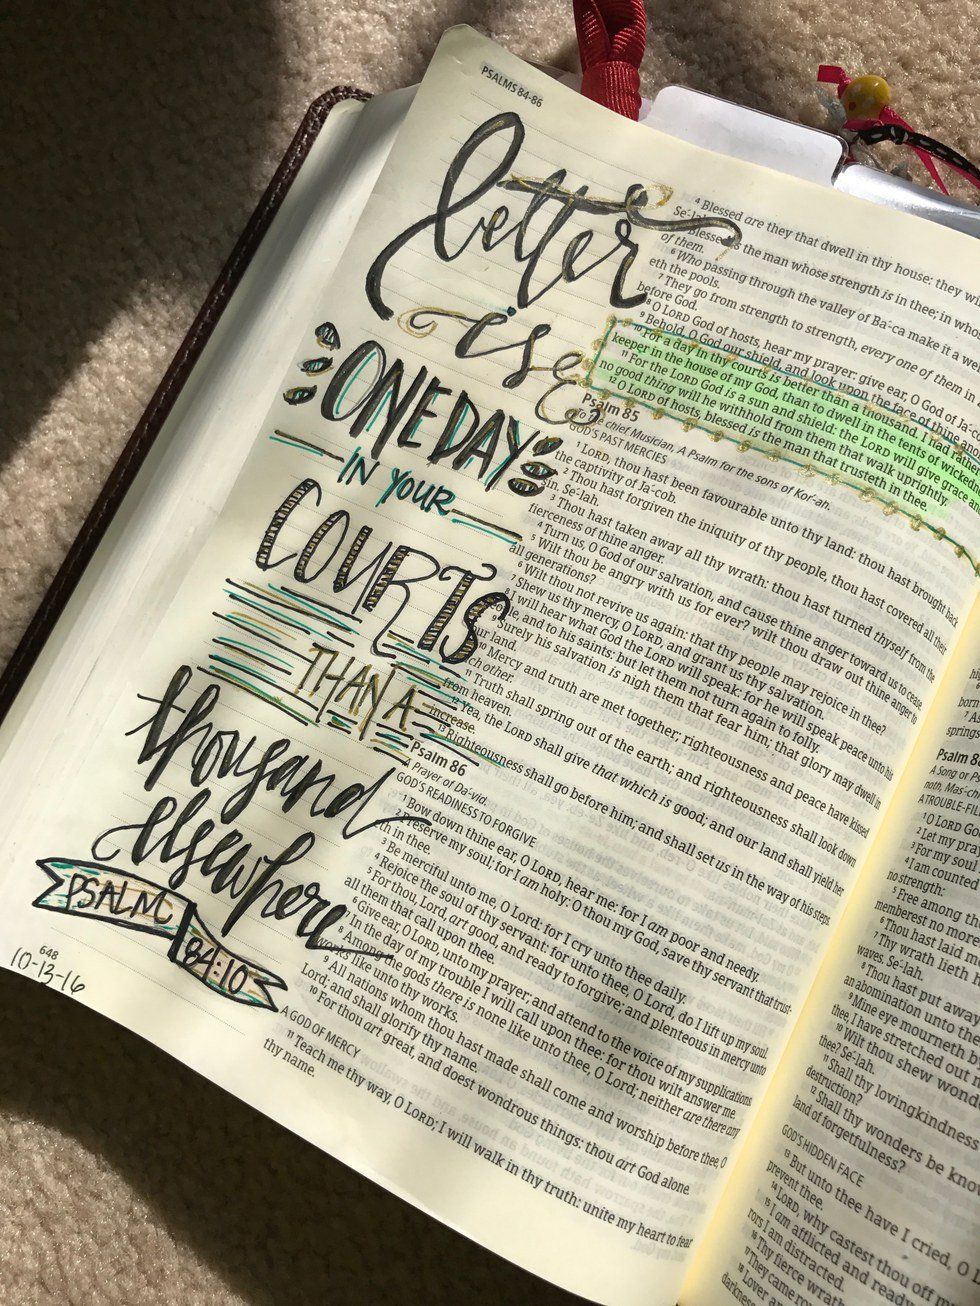 PSALMS 84-86
better
is
ONE DAY
IN YOUR
COURTS
THAN A
thousand
elsewhere
PSALM
84:10
648
10-13-16
4 Blessed are they that dwell in thy house: they
Se-lah.
Blessed is the man whose strength is in thee; in
of them.
6 Who passing through the valley of Ba-ca make it a
eth the pools.
7 They go from strength to strength, every one of them in
before God.
8 O LORD God of hosts, hear my prayer: give ear, O God of
9 Behold, O God our shield, and look upon the face of thine
10 For a day in thy courts is better than a thousand. I had
keeper in the house of my God, than to dwell in the tents of
11 For the LORD God is a sun and shield: the LORD will give grace
no good thing will he withhold from them that walk uprightly.
12 O LORD of hosts, blessed is the man that trusteth in thee.
Psalm 85
chief Musician, A Psalm for the sons of Kor-ah.
GOD'S PAST MERCIES
1 LORD, thou hast been favourable unto thy land: thou hast brought back
the captivity of Ja-cob.
2 Thou hast forgiven the iniquity of thy people, thou hast covered all their
sin. Se-lah.
3 Thou hast taken away all thy wrath: thou hast turned thyself from the
fierceness of thine anger.
4 Turn us, O God of our salvation, and cause thine anger toward us to cease.
5 Wilt thou be angry with us for ever? wilt thou draw out thine anger to
all generations?
6 Wilt thou not revive us again: that thy people may rejoice in thee?
7 Shew us thy mercy, O LORD, and grant us thy salvation.
8 I will hear what God the LORD will speak: for he will speak peace unto his
people, and to his saints: but let them not turn again to folly.
9 Surely his salvation is nigh them that fear him; that glory may dwell in
our land.
10 Mercy and truth are met together; righteousness and peace have kissed
each other.
11 Truth shall spring out of the earth; and righteousness shall look down
from heaven.
12 Yea, the LORD shall give that which is good; and our land shall yield her
increase.
13 Righteousness shall go before him; and shall set us in the way of his steps.
Psalm 86
A Prayer of Da-vid.
GOD'S READINESS TO FORGIVE
1 Bow down thine ear, O LORD, hear me: for I am poor and needy.
2 Preserve my soul; for I am holy: O thou my God, save thy servant that trust-
eth in thee.
3 Be merciful unto me, O Lord: for I cry unto thee daily.
4 Rejoice the soul of thy servant: for unto thee, O Lord, do I lift up my soul.
5 For thou, Lord, art good, and ready to forgive; and plenteous in mercy unto
all them that call upon thee.
6 Give ear, O LORD, unto my prayer; and attend to the voice of my supplications.
7 In the day of my trouble I will call upon thee: for thou wilt answer me.
8 Among the gods there is none like unto thee, O Lord; neither are there any
works like unto thy works.
9 All nations whom thou hast made shall come and worship before thee, O
Lord; and shall glorify thy name.
10 For thou art great, and doest wondrous things: thou art God alone.
A GOD OF MERCY
11 Teach me thy way, O LORD; I will walk in thy truth: unite my heart to fear
thy name.
born
springs
Psalm
A Song or
noth, Mas-chil
A TROUBLE-
1 O LORD God
2 Let my pray
3 For my soul
4 I am counted
no strength:
5 Free among
memberest no more
6 Thou hast laid me
7 Thy wrath lieth
waves. Se-lah.
8 Thou hast put away
an abomination unto
9 Mine eye mourneth
thee, I have stretched out
10 Wilt thou shew wonders
thee? Se-lah.
11 Shall thy lovingkindness
destruction?
12 Shall thy wonders be known
land of forgetfulness?
GOD'S HIDDEN FACE
13 But unto thee have I cried, O
prevent thee.
14 LORD, why castest thou off my
15 I am afflicted and ready
rors I am distracted.
16 Thy fierce wrath
17 They came round
18 Lover and
darkness